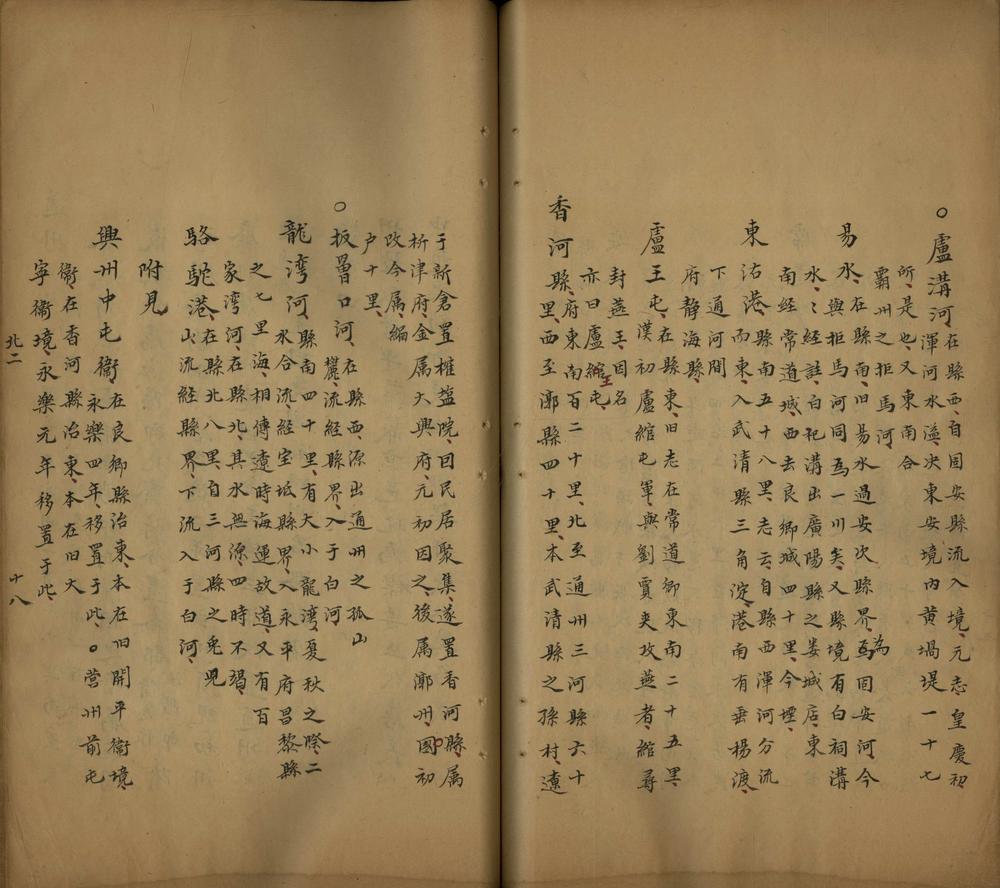 ○盧溝河在縣西自固安縣流入境元志皇慶初
渾河水溢决東安境内黄堝堤一十七
所是也又東南合
霸州之拒馬河
易水在縣南旧易水過安次縣界為固安河今
與拒馬河同為一川矣又縣境有白祠溝
水水經註白祀溝出廣陽縣之婁城店東
南經常道城西去良鄉城四十里今堙
東沽港縣南五十八里志云自縣西渾河分流
而東入武清縣三角淀港南有垂楊渡
下通河間
府静海縣
盧王屯在縣東旧志在常道鄉東南二十五里
漢初盧綰屯軍與劉賈夾攻燕者綰尋
封燕王因名
亦曰盧王屯
香河縣府東南百二十里北至通州三河縣六十
里西至漷縣四十里本武清縣之孫村遼
于新倉置榷盐院囙民居聚集遂置香河縣属
析津府金属大興府元初因之後属漷州國初
改今属編
户十里
○扳罾口河在縣西源出通州之孤山
流經縣界入于白河
龍湾河縣南四十里有大小龍湾夏秋之際二
水合流經宝坻縣界入永平府昌黎縣
之七里海相傳遼時海運故道又有百
家湾河在縣北其水無源四時不竭
駱駝港在縣北八里自三河縣之兎兒
山流經縣界下流入于白河
附見
興州中屯衞在良鄉縣治東本在旧開平衞境
永樂四年移置于此○营州前屯
衞在香河縣治東本在旧大
寧衞境永樂元年移置于此
北二
十八